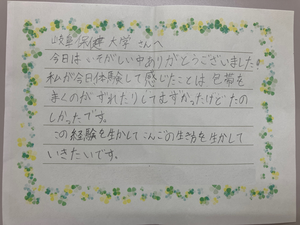 岐阜保健大学さんへ
今日はいそがしい中ありがとうございました
私が今日体験して感じたことは包帯を
まくのがずれたりしてむずかったけどたの
しかったです。
この経験を生かしてこんごの生活を生かして
いきたいです。